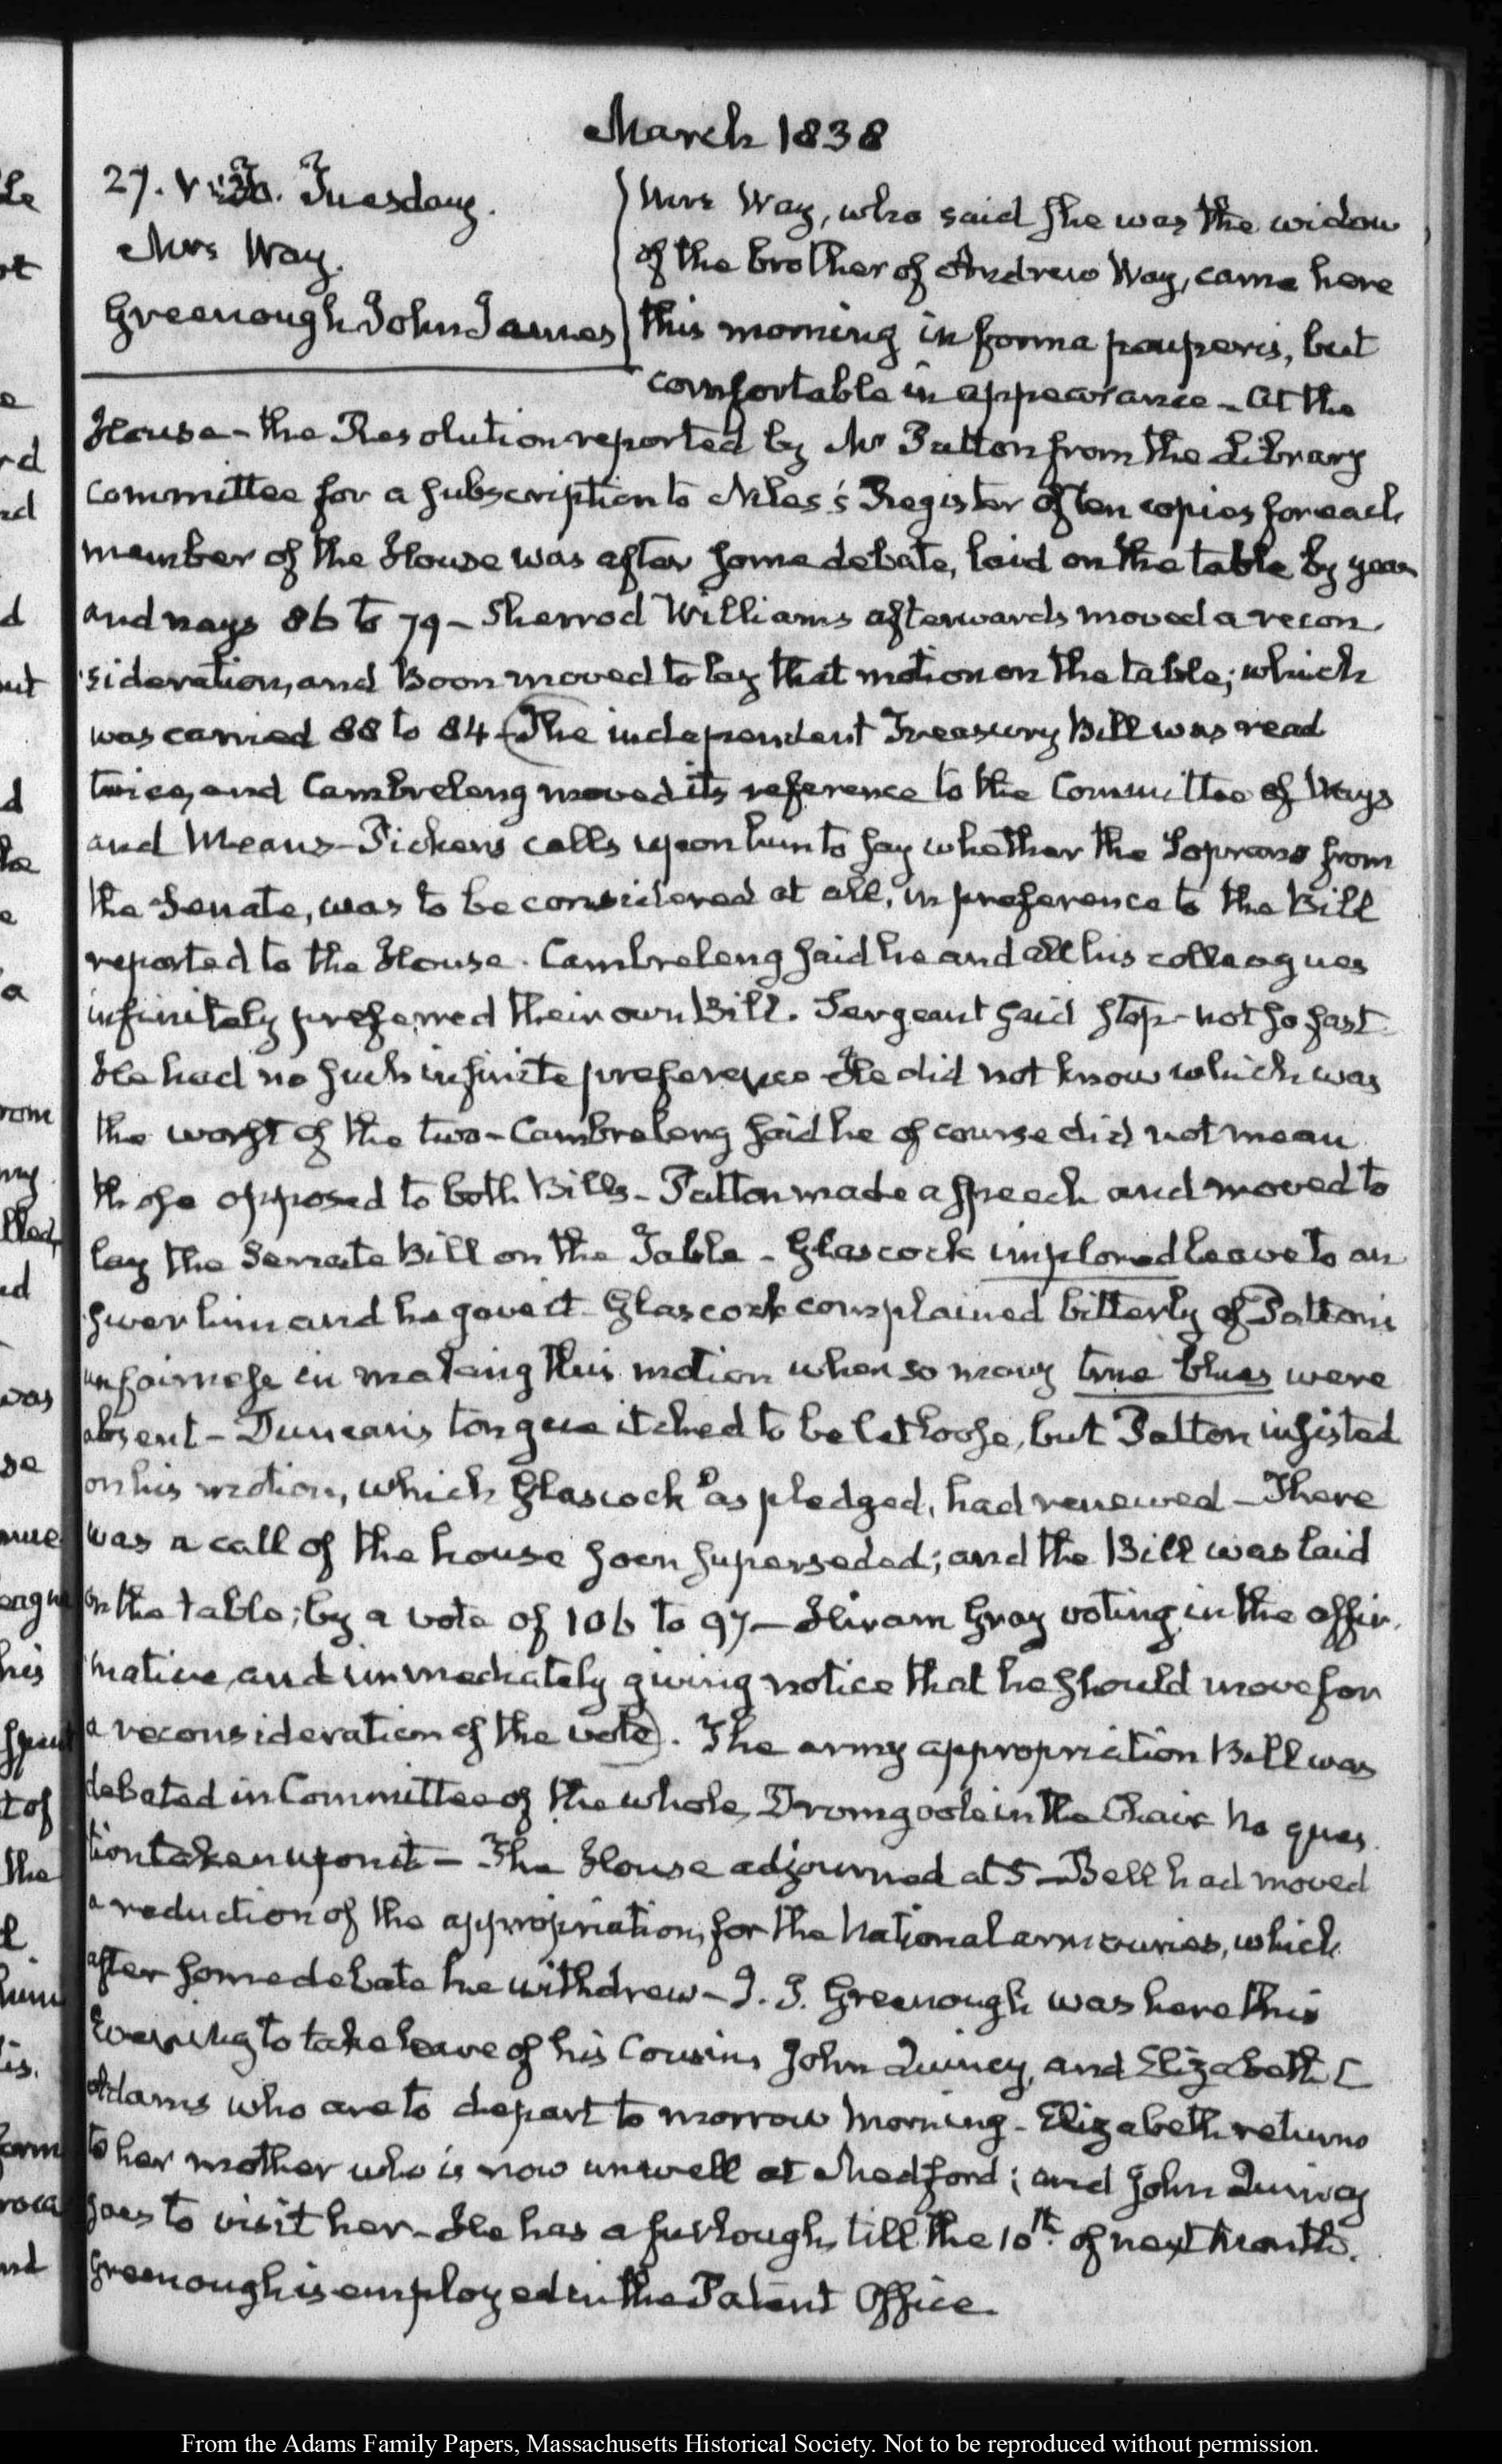 March 1838
27. V: Tuesday.
Mrs Way.
Greenough John James
Mrs Way, who said she was the widow
of the brother of Andrew Way, came here
this morning in forma pauperis, but
comfortable in appearance – At the
House – the Resolution reported by Mr Patton from the Library
Committee for a subscription to Niles's Register of ten copies for each
member of the House was after some debate, laid on the table by yeas
and nays 86 to 79 – Sherrod Williams afterwards moved a recon
sideration, and Boon moved to lay that motion on the table; which
was carried 88 to 84 – (The independent Treasury Bill was read
twice, and Cambreleng moved its reference to the Committee of Ways
and Means – Pickens calls upon him to say whether the from
the Senate, was to be considered at all, in preference to the Bill
reported to the House. Cambreleng said he and all his colleagues
infinitely preferred their own Bill. Sergeant said stop – not so fast
He had no such infinite preference He did not know which was
the worst of the two – Cambreleng said he of course did not mean
those opposed to both Bills – Patton made a speech and moved to
lay the Senate Bill on the Table – Glascock implored leave to an
swer him and he gave it – Glascock complained bitterly of Patton's
unfairness in making this motion when so many true blues were
absent – Duncan's tongue itched to be let loose, but Patton insisted
on his motion, which Glascock as pledged, had renewed – There
was a call of the house soon superseded; and the Bill was laid
on the table; by a vote of 106 to 97 – Hiram Gray voting in the affir
mative, and immediately giving notice that he should move for
a reconsideration of the vote). The army appropriation Bill was
debated in Committee of the whole, Dromgoole in the Chair no ques
tion taken upon it – The House adjourned at 5 – Bell had moved
a reduction of the appropriation, for the National armouries, which
after some debate he withdrew – J. J. Greenough was here this
Evening to take leave of his Cousins John Quincy, and Elizabeth C
Adams who are to depart to morrow morning – Elizabeth returns
to her mother who is now unwell at Medford; and John Quincy
goes to visit her – He has a furlough, till the 10th. of next month.
Greenough is employed in the Patent Office.
From the Adams Family Papers, Massachusetts Historical Society. Not to be reproduced without permission.